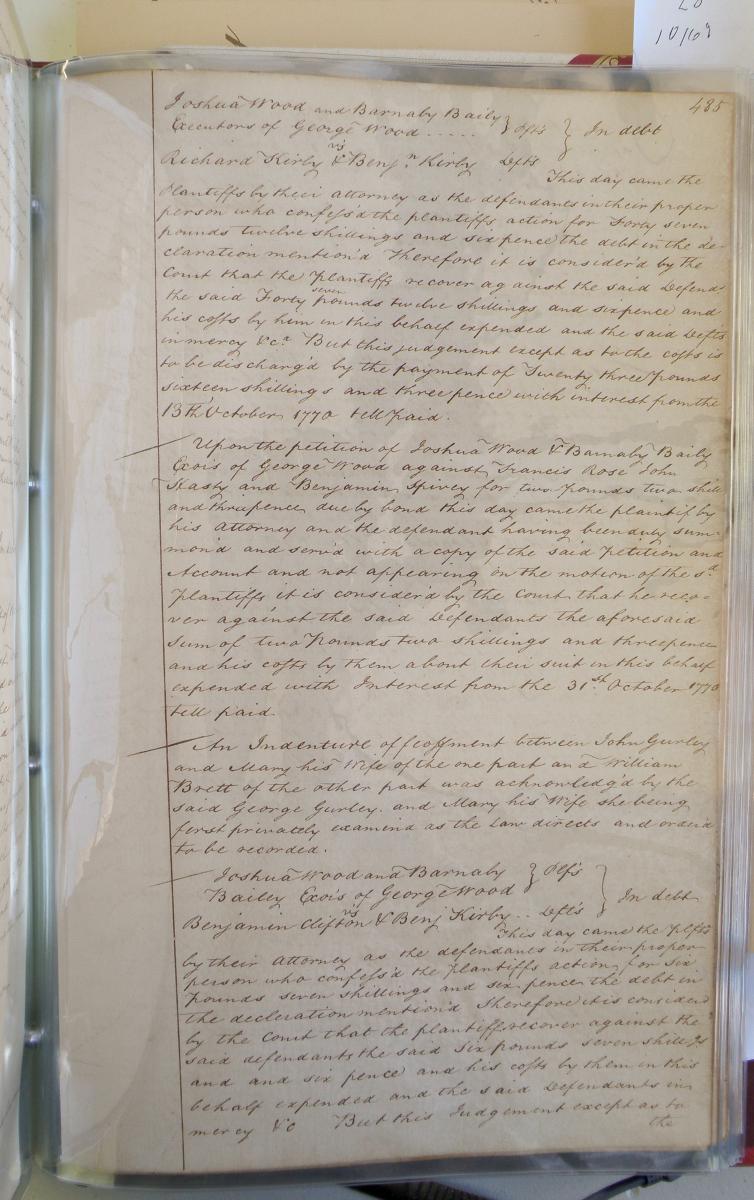 10/69
485
Joshua Wood and Barnaby Baily } Plfs } In debt
Executors of George Wood . . . . .
vs
Richard Kirby & Benjn Kirby Defts
This day came the
Plantiffs by their attorney as the defendants in their proper
person who confess'd the plantiffs action for Forty seven
pounds twelve shillings and six pence the debt in the de-
claration mention'd Therefore it is consider'd by the
Court that the Plantiffs recover against the said Defend
the said Forty seven pounds twelve shillings and sixpence and
his costs by him in this behalf expended and the said Defts
in mercy &ca But this judgement except as to the costs is
to be discharg'd by the payment of Twenty three Pounds
sixteen shillings and three pence with interest from the
13th October 1770 till paid.
Upon the petition of Joshua Wood & Barnaby Baily
Exois of George Wood against Francis Rose John
Hasty and Benjamin Spivey for two pounds two shill
and threepence due by bond this day came the plaintif by
his attorney and the defendant having been duly sum-
mon'd and serv'd with a copy of the said Petition and
Account and not appearing on the motion of the sd
Plantiffs it is consider'd by the Court that he reco-
ver against the said Defendants the aforesaid
Sum of two Pounds two shillings and threepence
and his costs by them about their suit in this behalf
expended with Interest from the 31st October 1770
till paid.
An Indenture of feoffment between John Gurley
and Mary his Wife of the one part and William
Brett of the other part was acknowledg'd by the
said George Gurley. and Mary his Wife she being
first privately examind as the Law directs and order'd
to be recorded.
Joshua Wood and Barnaby } Plf's } In debt
Bailey Exois of George Wood
vs
Benjamin Clifton & Benj Kirby . . Deft's
This day came the Plfts
by their Attorney as the defendants in their proper
person who confess'd the plantiffs action for six
Pounds seven shillings and six pence the debt in
the decleration mention'd Therefore it is consider'd
by the Court that the plantiff recover against the
said defendants the said six pounds seven shillgs
and and six pence and his costs by them in this
behalf expended and the said Defendants in
mercy &c But this Judgement except as to
the